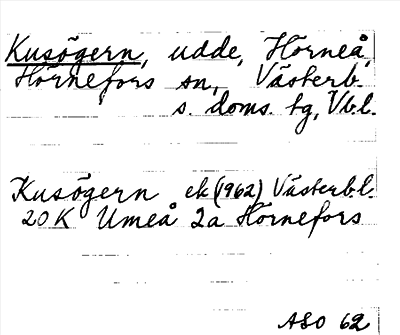 Kusögern, udde, Hörneå,
Hörnefors sn, Västerb.
s. doms. tg, Vbl.
Kusögern ek (1962) Västerb.l.
20 K Umeå 2a Hörnefors
ASO 62